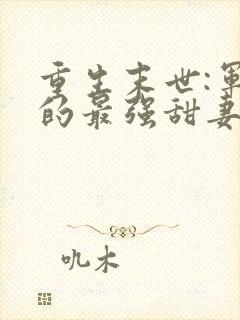 重生末世:軍
的最强甜妻
叽木